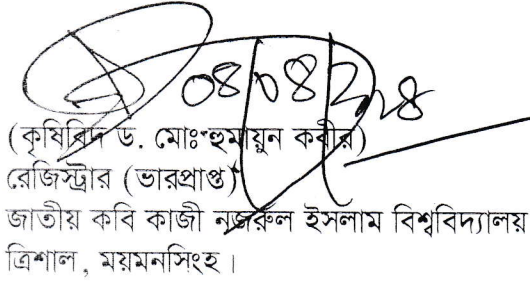 ০৪/০৪/২০২৪
(কৃষিবিদ ড. মোঃ হুমায়ুন কবীর)
রেজিস্ট্রার (ভারপ্রাপ্ত)
জাতীয় কবি কাজী নজরুল ইসলাম বিশ্ববিদ্যালয়
ত্রিশাল, ময়মনসিংহ।